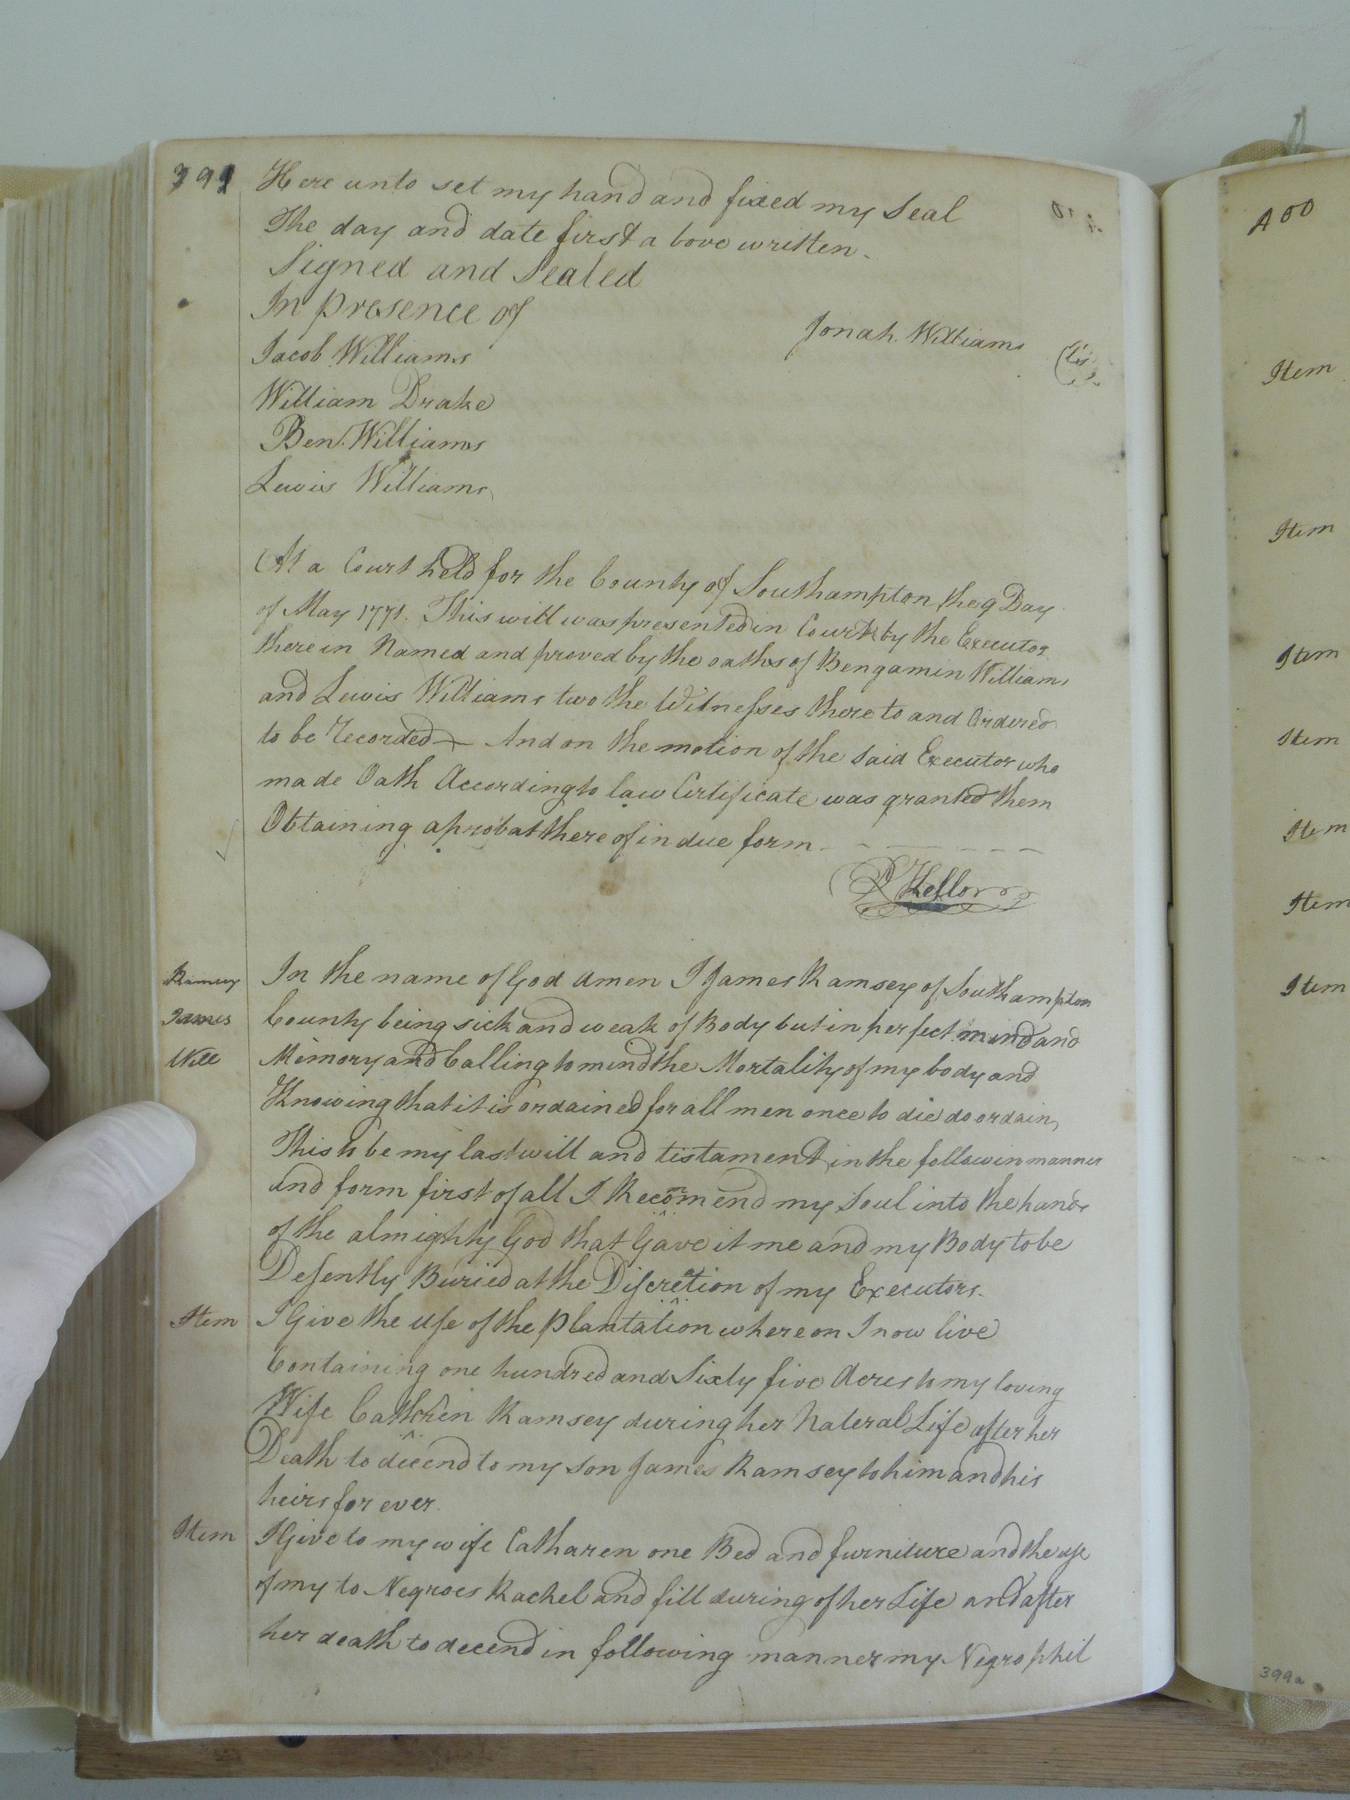 399
Here unto set my hand and fixed my Seal
The day and date first a bove written.
Signed and Sealed
In presence of
Jonah Williams
Jacob Williams
William Drake
Ben. Williams
Lewis Williams
At a Court held for the County of Southampton the 9 Day
of May 1771. This will was presented in Court by the Executor
there in Named and proved by the oaths of Bengamin Williams
and Lewis Williams two the Witnesses there to and Ordered
to be recorded And on the motion of the said Executor who
made Oath According to law Certificate was granted them
Obtaining a probat there of in due form
Ramsey
James
Will
In the name of God Amen I James Ramsey of Southampton
County being sick and weak of Body but in perfect mind and
Memory and Calling to mind the Mortality of my body and
Knowing that it is ordained for all men once to die do ordain
This to be my last will and tistament in the followin manner
And form first of all I Recommend my Soul into the hands
of the almighty God that Gave it me and my Body to be
Desently Buried at the Discretion of my Executors.
Item I Give the use of the plantation where on I now live
Containing one hundred and Sixty five Acres to my loving
Wife Catharin Ramsey during her Nateral Life after her
Death to decend to my son James Ramsey to him and his
heirs for ever.
Item I Give to my wife Catharen one Bed and furniture and the use
of my to Negroes Rachel and fill during of her Life and after
her death to decend in following manner my Negro phil
400
Item
Item
Item
Item
Item
Item
Item
399a